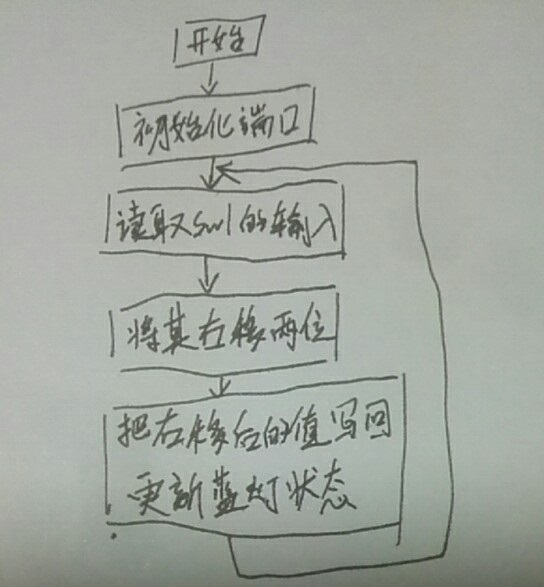 开始
初始化端口
读取SW1的输入
将其右移两位
把右移后的值写回
更新蓝灯状态